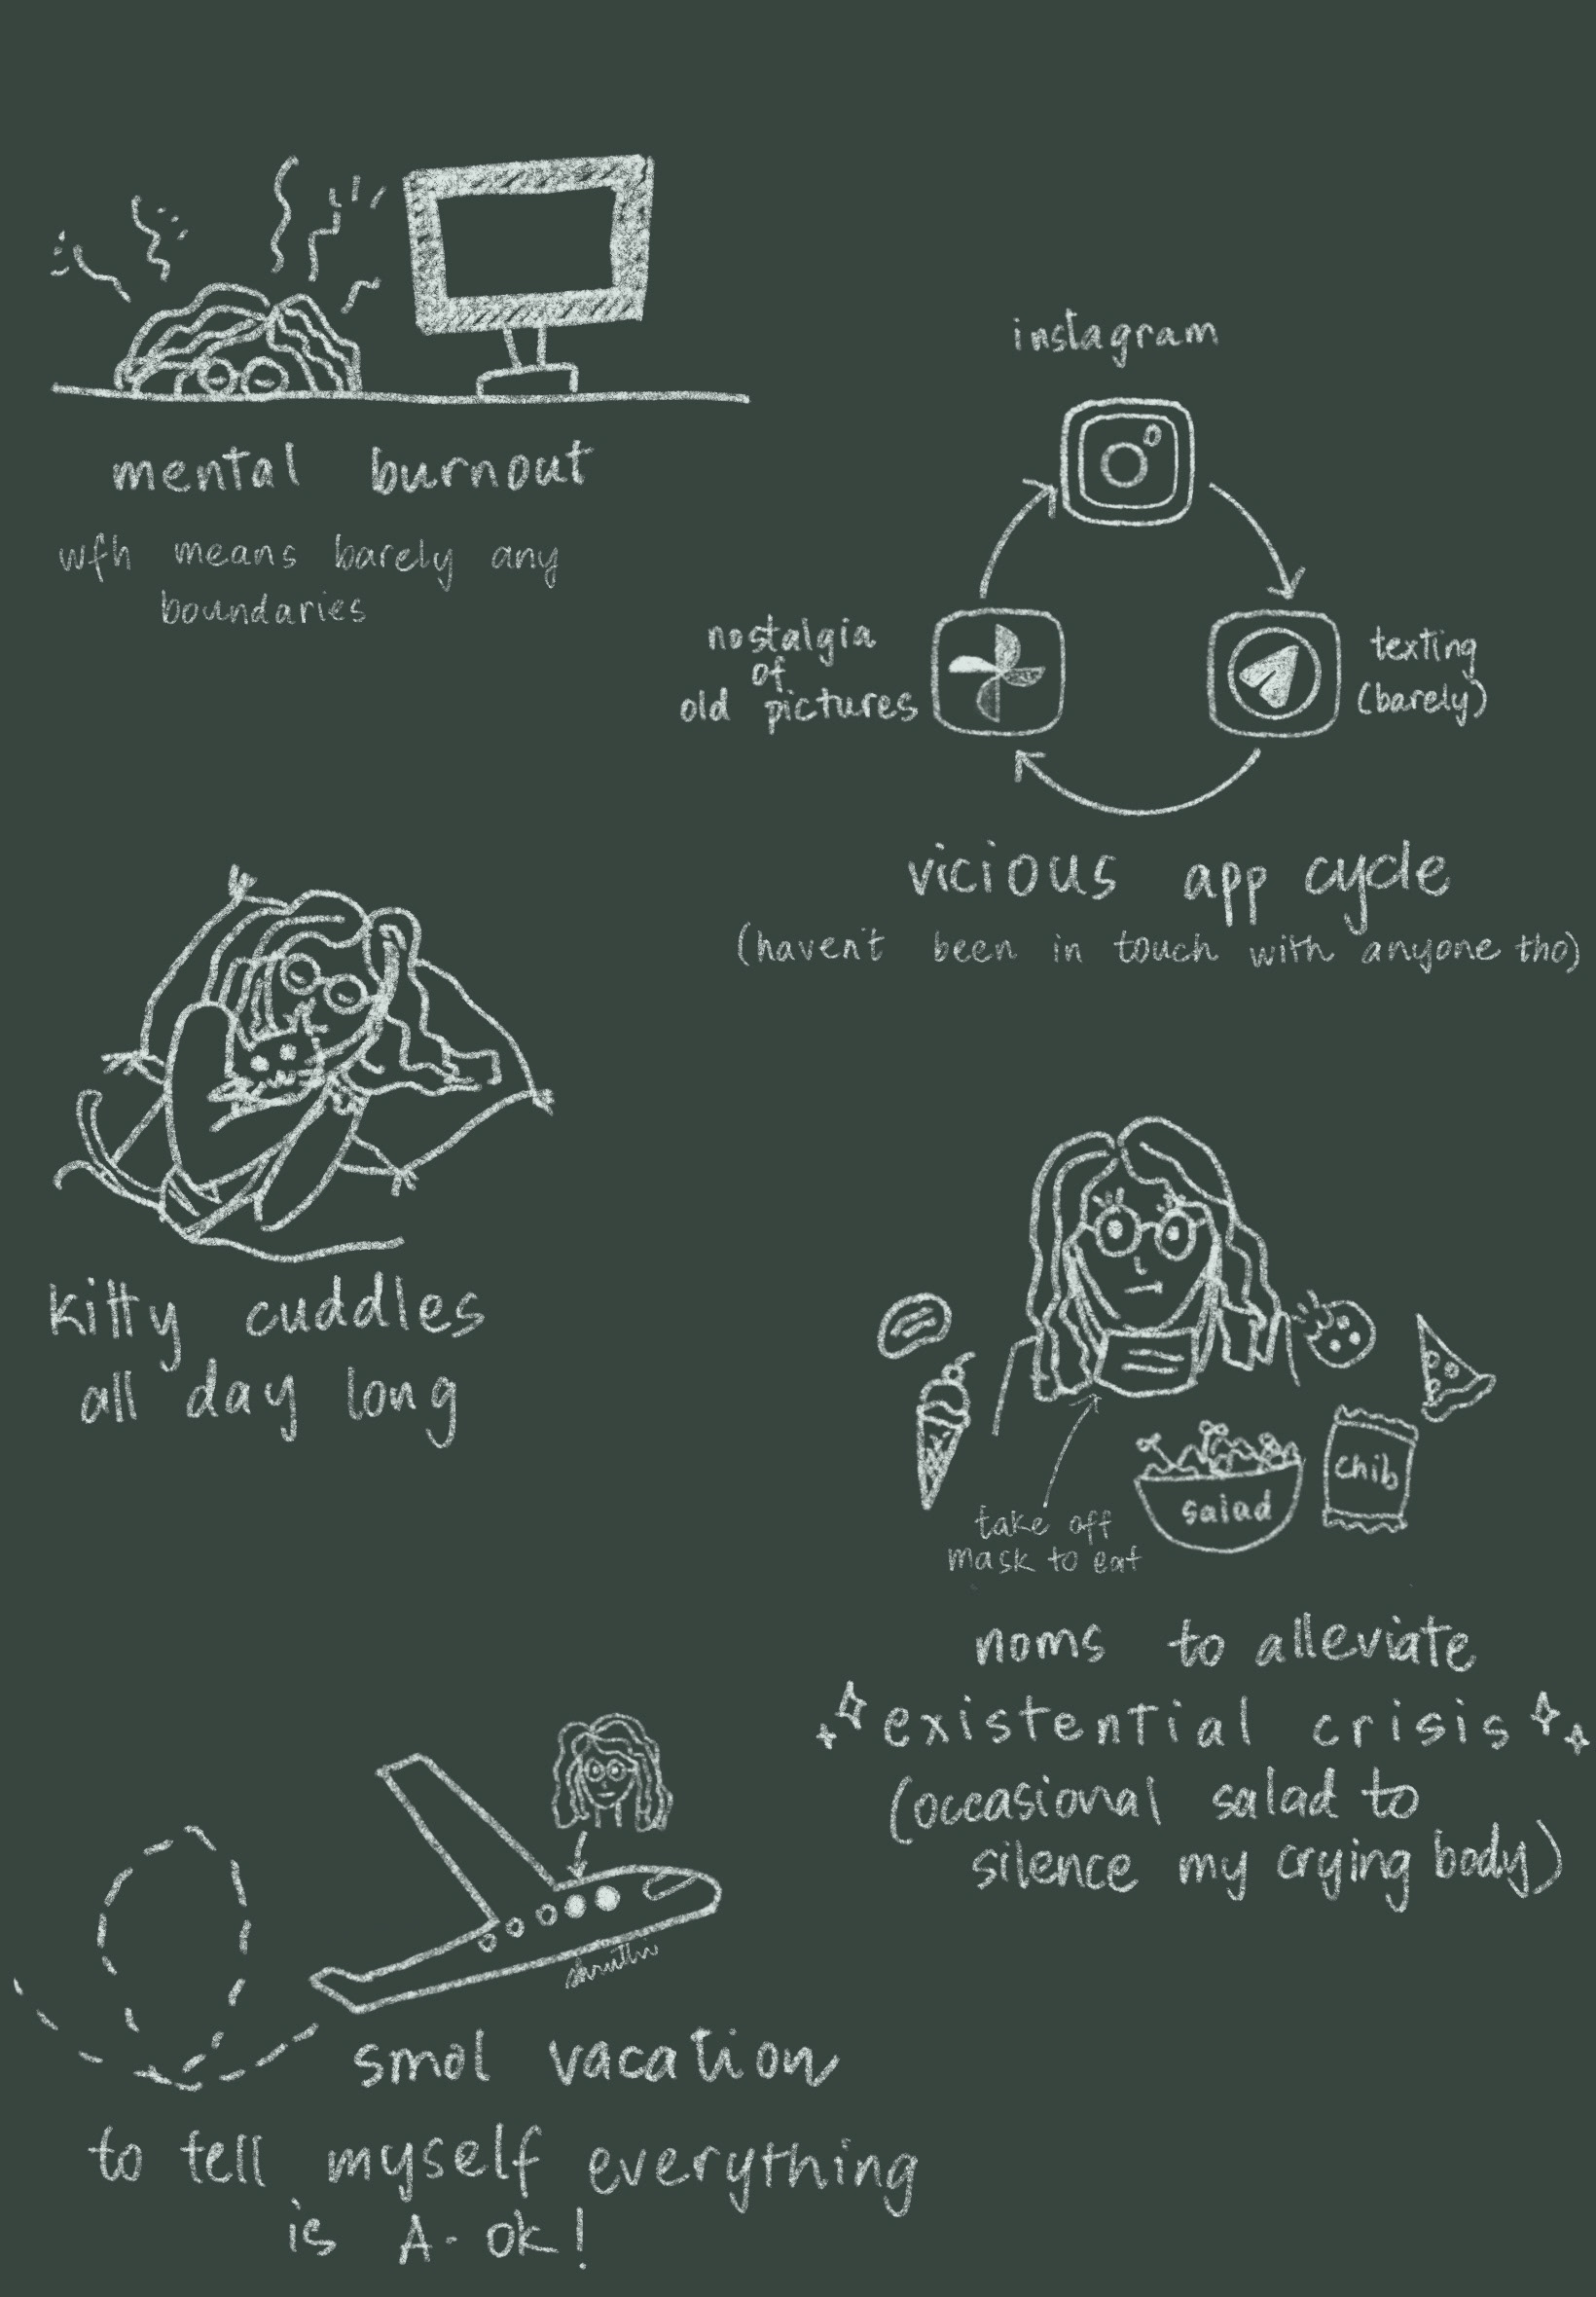 mental burnout
wfh means barely any
boundaries
instagram
texting
(barely)
nostalgia
of
old pictures
vicious app cycle
(haven't been in touch with anyone tho)
kitty cuddles
all day long
take off
mask to eat
salad
chib
noms to alleviate
existential crisis
(occasional salad to
silence my crying body)
shruthi
smol vacation
to tell myself everything
is A-Ok!